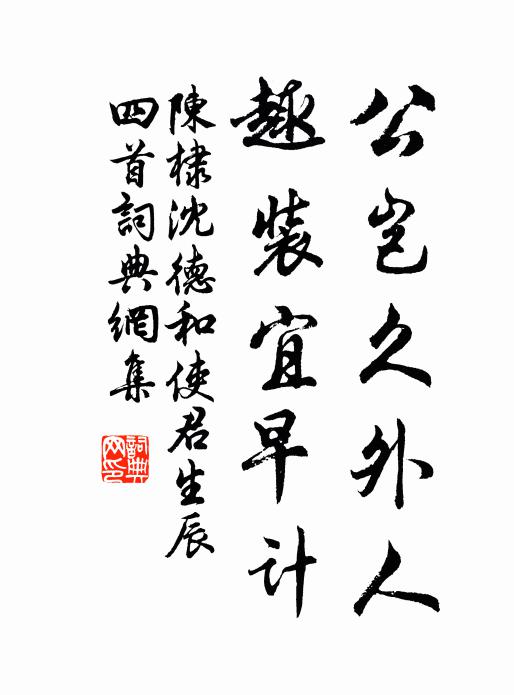 公岂久外人
趣裝宜早计
陳棣沈德和使君生辰
四首詞典網集
詞典网印